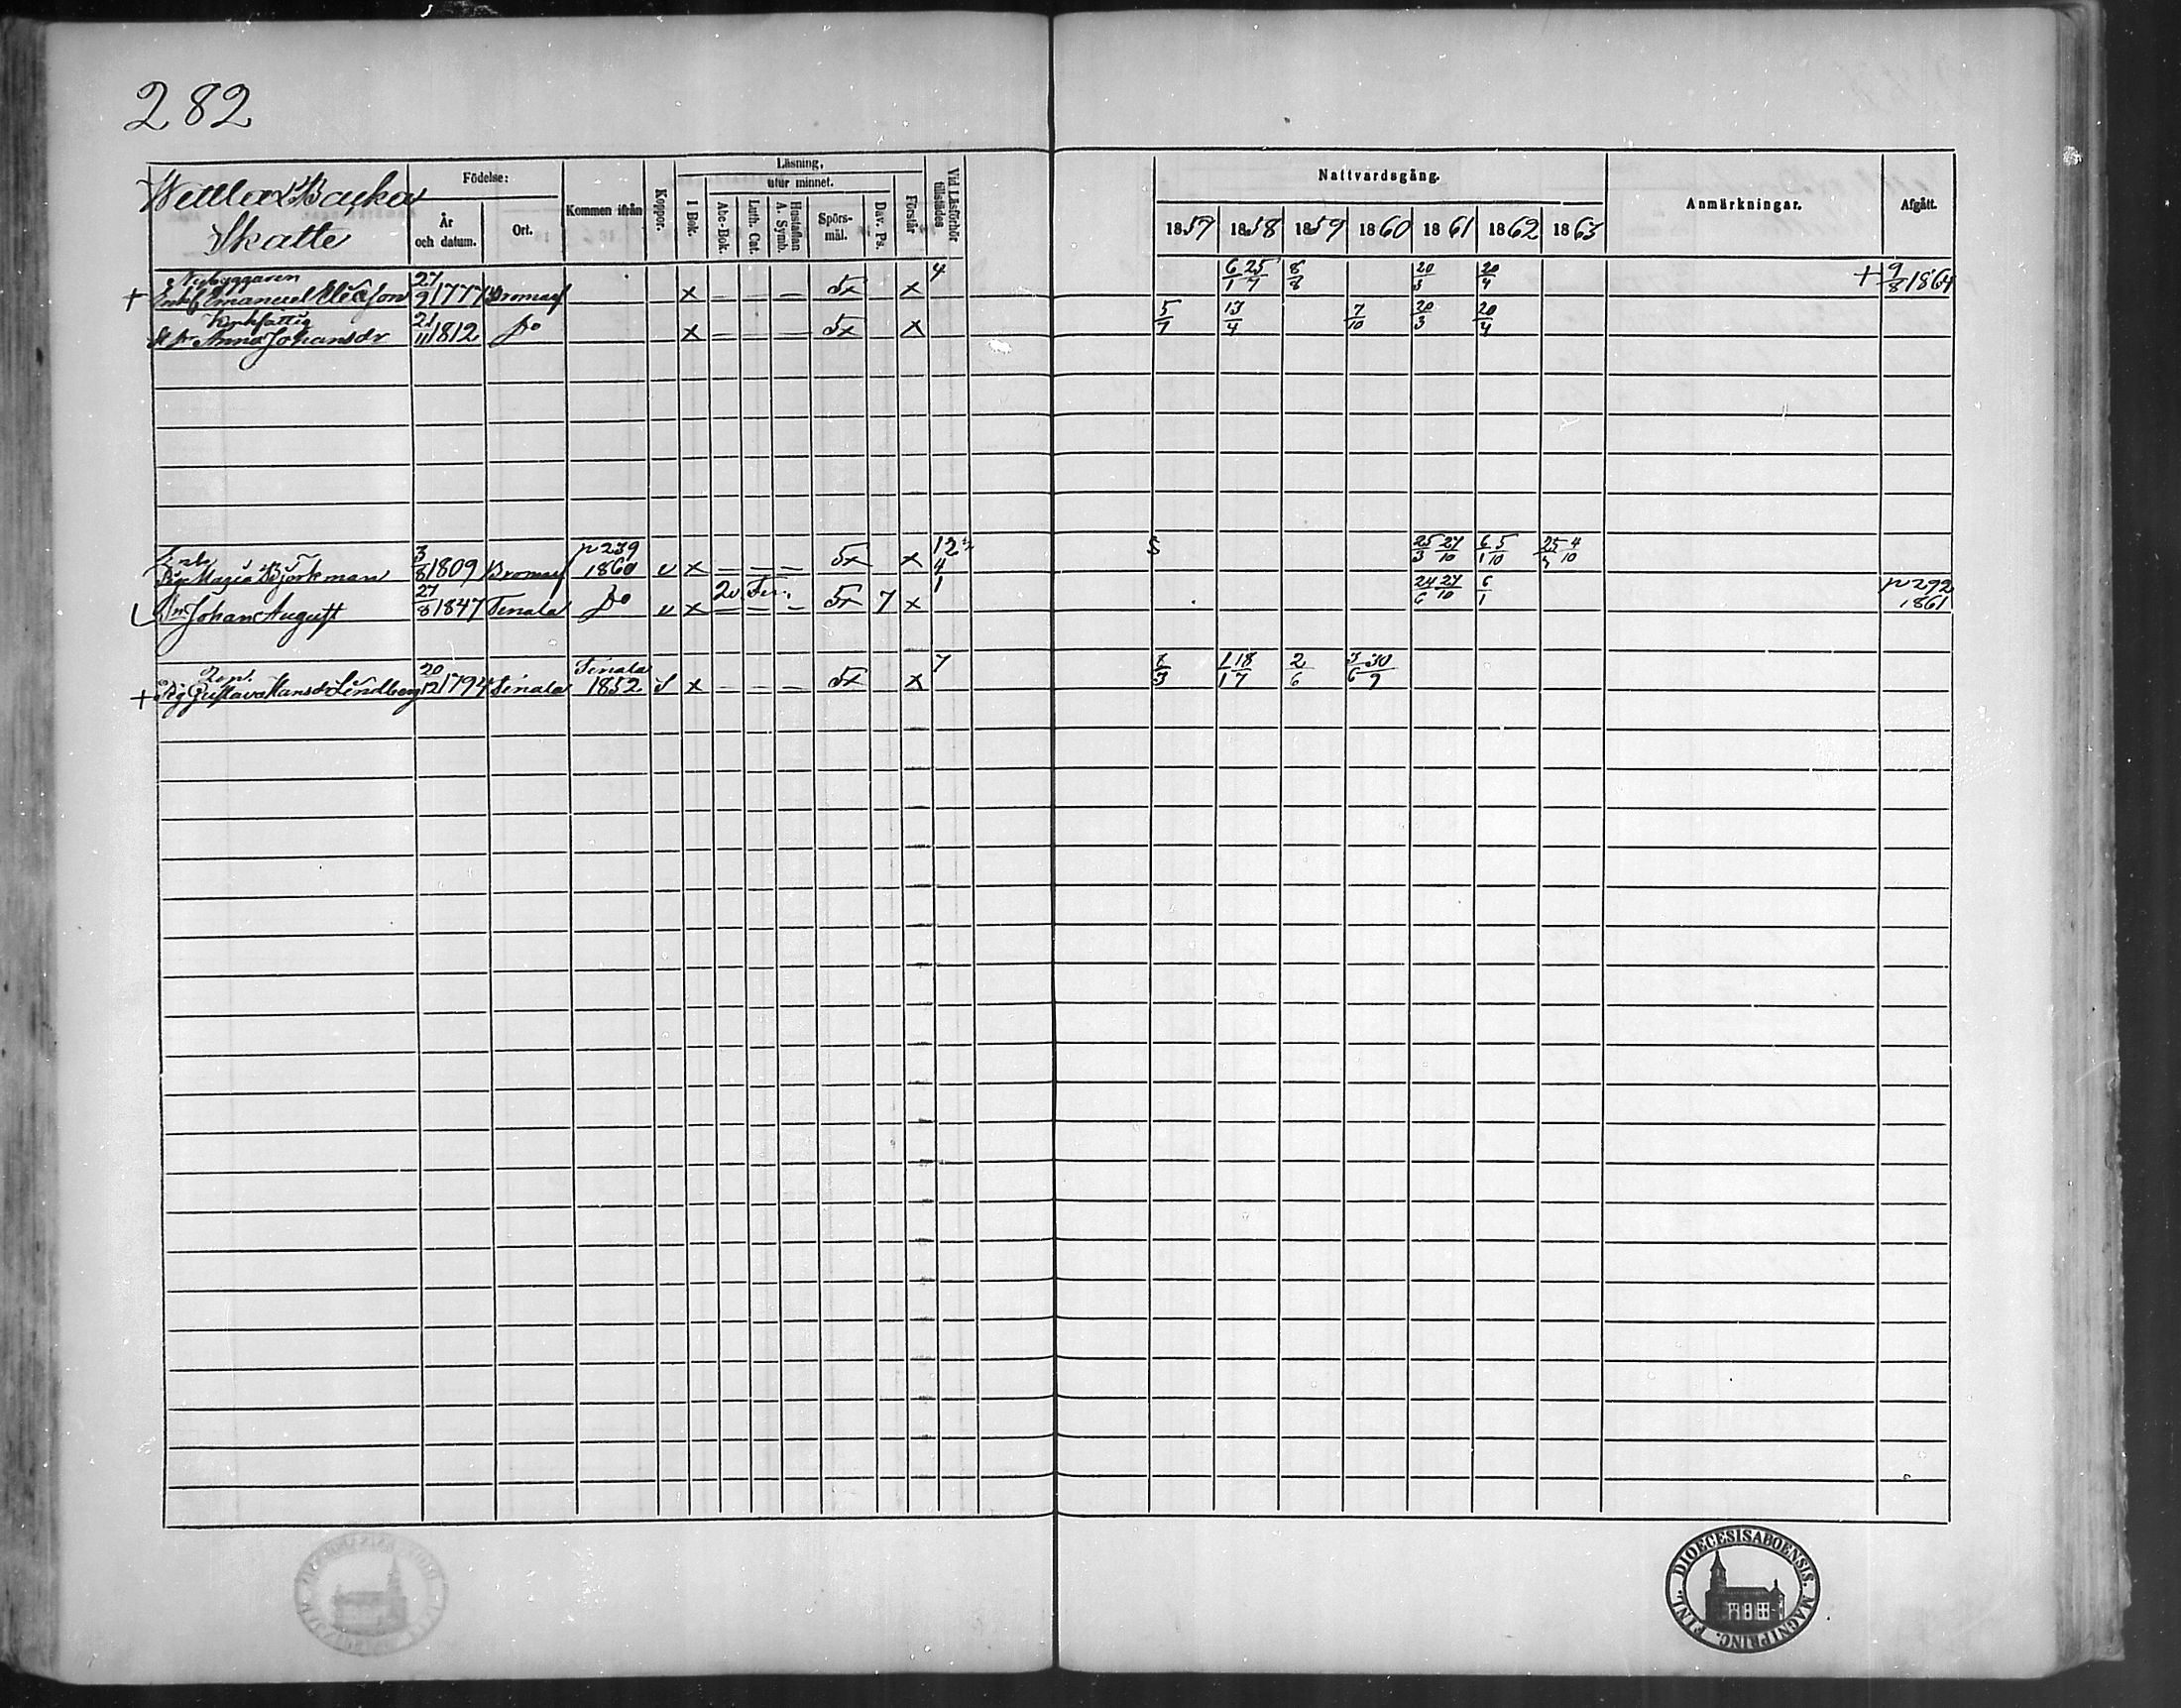 282
Födelse:
Läsning,
utur minnet.
Skatte
År
och datum.
Ort.
Kommen ifrån
Koppor.
I Bok.
Abc-Bok.
Luth. Cat.
Hustaflan
A. Symb.
Spörs-
mål.
Dav. Ps.
Förstår
Vid Läsförhör
tillstädes
Nattvardsgång.
1857 1858 1859 1860 1861 1862 1863
Anmärkningar.
Afgått.
Nybyggaren 27 4 6 25 8 20 20 9
+ Enkl Emanuel 9 1777 Bromarf x – – – 5x x 1 7 8 3 4 + 8 1864
21 5 13 7 20 20
Anna Johansdr 11 1812 Do x – – – 5x x 7 4 10 3 4
Enk 3 p 239 12 25 27 6 5 25 4
Maria Björkman 8 1809 Bromarf 1860 v x – – – 5x x 4 3 10 1 10 10
27 1 24 27 6 p 292
Johan August 8 1847 Tenala Do v x – – – 5x 7 x 6 10 1 1861
20 Tenala 7 8 1 18 2 3 30
+ Gustava Hansdr Lindberg 12 1794 Tenala 1852 S x – – – 5x x 3 1 7 6 6 9
DIOECESIS ABOENSIS. MAGNI PRINC. FINL.